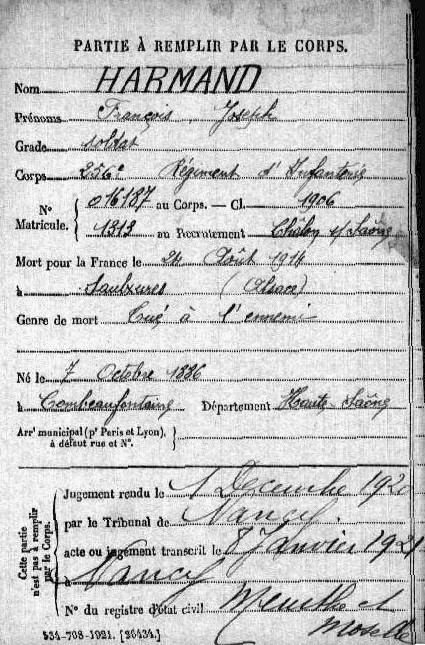 PARTIE À REMPLIR PAR LE CORPS.
Nom HARMAND
Prénoms François Joseph
Grade soldat
Corps 256e Régiment d'Infanterie
N° Matricule. { 016187 au Corps. — Cl. 1906
1313 au Recrutement Châlon s/ Saône
Mort pour la France le 24 Août 1914
à Saulxures (Alsace)
Genre de mort Tué à l'ennemi
Né le 7 Octobre 1886
à Combeaufontaine Département Haute Saône
Arrt municipal (pr Paris et Lyon), à défaut rue et N°. {
Cette partie n'est pas à remplir par le Corps.
Jugement rendu le 1 Décembre 1920
par le Tribunal de Nancy.
acte ou jugement transcrit le 8 Janvier 1921
à Nancy
N° du registre d'état civil Meurthe et
Moselle
534-708-1921. [26434.]